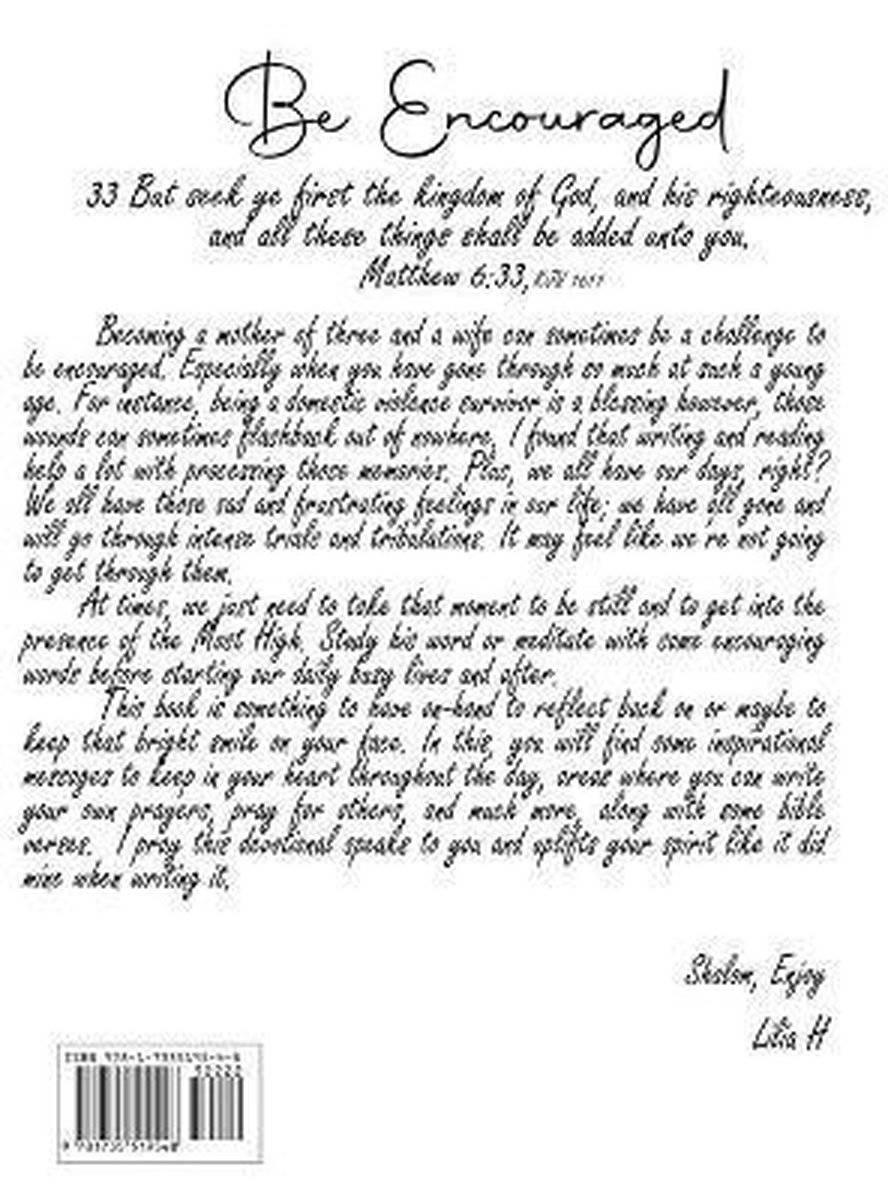 Be Encouraged
33 But seek ye first the kingdom of God, and his righteousness,
and all these things shall be added unto you.
Matthew 6:33, KJV 1611
Becoming a mother of three and a wife can sometimes be a challenge to
be encouraged. Especially when you have gone through so much at such a young
age. For instance, being a domestic violence survivor is a blessing however, those
wounds can sometimes flashback out of nowhere. I found that writing and reading
help a lot with processing those memories. Plus, we all have our days, right?
We all have those sad and frustrating feelings in our life; we have all gone and
will go through intense trials and tribulations. It may feel like we're not going
to get through them.
At times, we just need to take that moment to be still and to get into the
presence of the Most High. Study his word or meditate with some encouraging
words before starting our daily busy lives and after.
This book is something to have on-hand to reflect back on or maybe to
keep that bright smile on your face. In this, you will find some inspirational
messages to keep in your heart throughout the day, areas where you can write
your own prayers, pray for others, and much more, along with some bible
verses. I pray this devotional speaks to you and uplifts your spirit like it did
mine when writing it.
Shalom, Enjoy
Lilia H
ISBN